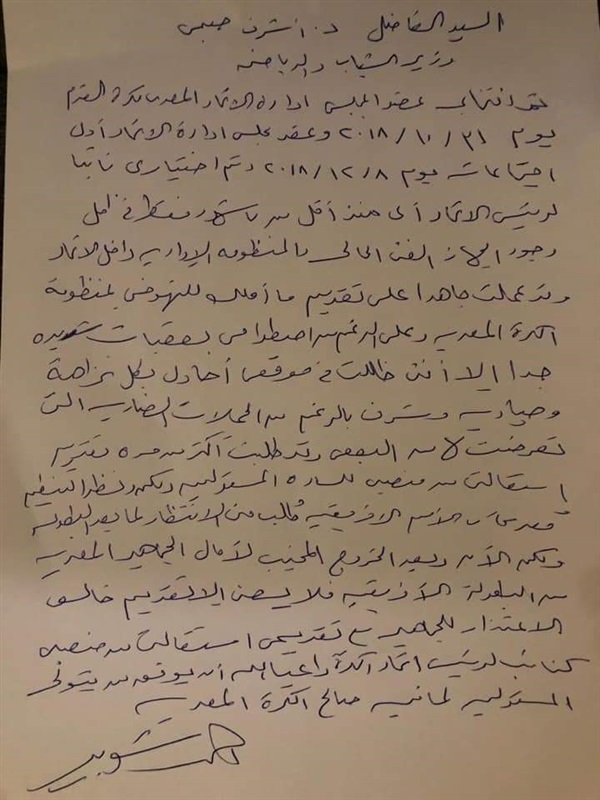 السيد الفاضل د. أشرف صبحى
وزير الشباب والرياضه
تم انتخابى عضوا لمجلس ادارة الاتحاد المصرى لكرة القدم
يوم ٣١ / ١٠ / ٢٠١٨ وعقد مجلس ادارة الاتحاد أول
اجتماعاته يوم ٨ / ١٢ / ٢٠١٨ وتم اختيارى نائبا
لرئيس الاتحاد أى منذ أقل من شهور فقط فى ظل
وجود الجهاز الفنى الحالى والمنظومه الإداريه داخل الاتحاد
وقد عملت جاهدا على تقديم ما أملك للنهوض بمنظومة
الكرة المصريه وعلى الرغم من اصطدامى بعقبات شديده
جدا إلا أننى ظللت فى موقعى أحاول بكل نزاهة
وحياديه وشرف بالرغم من الحملات الضاريه التى
تعرضت لها من البعض وقد طلبت أكثر من مره تقديم
إستقالتى من منصبى للساده المسئولين ولكن ونظرا لتنظيم
مصر كأس الأمم الافريقيه طُلب منى الانتظار لما بعد البطوله
ولكن الآن وبعد الخروج المخيب لآمال الجماهير المصريه
من البطولة الأفريقيه فلا يسعنى إلا تقديم خالص
الاعتذار للجماهير مع تقديمى استقالتى من منصبى
كنائب لرئيس اتحاد الكرة داعيا الله أن يوفق من يتولى
المسئوليه لما فيه صالح الكرة المصريه
شوبير